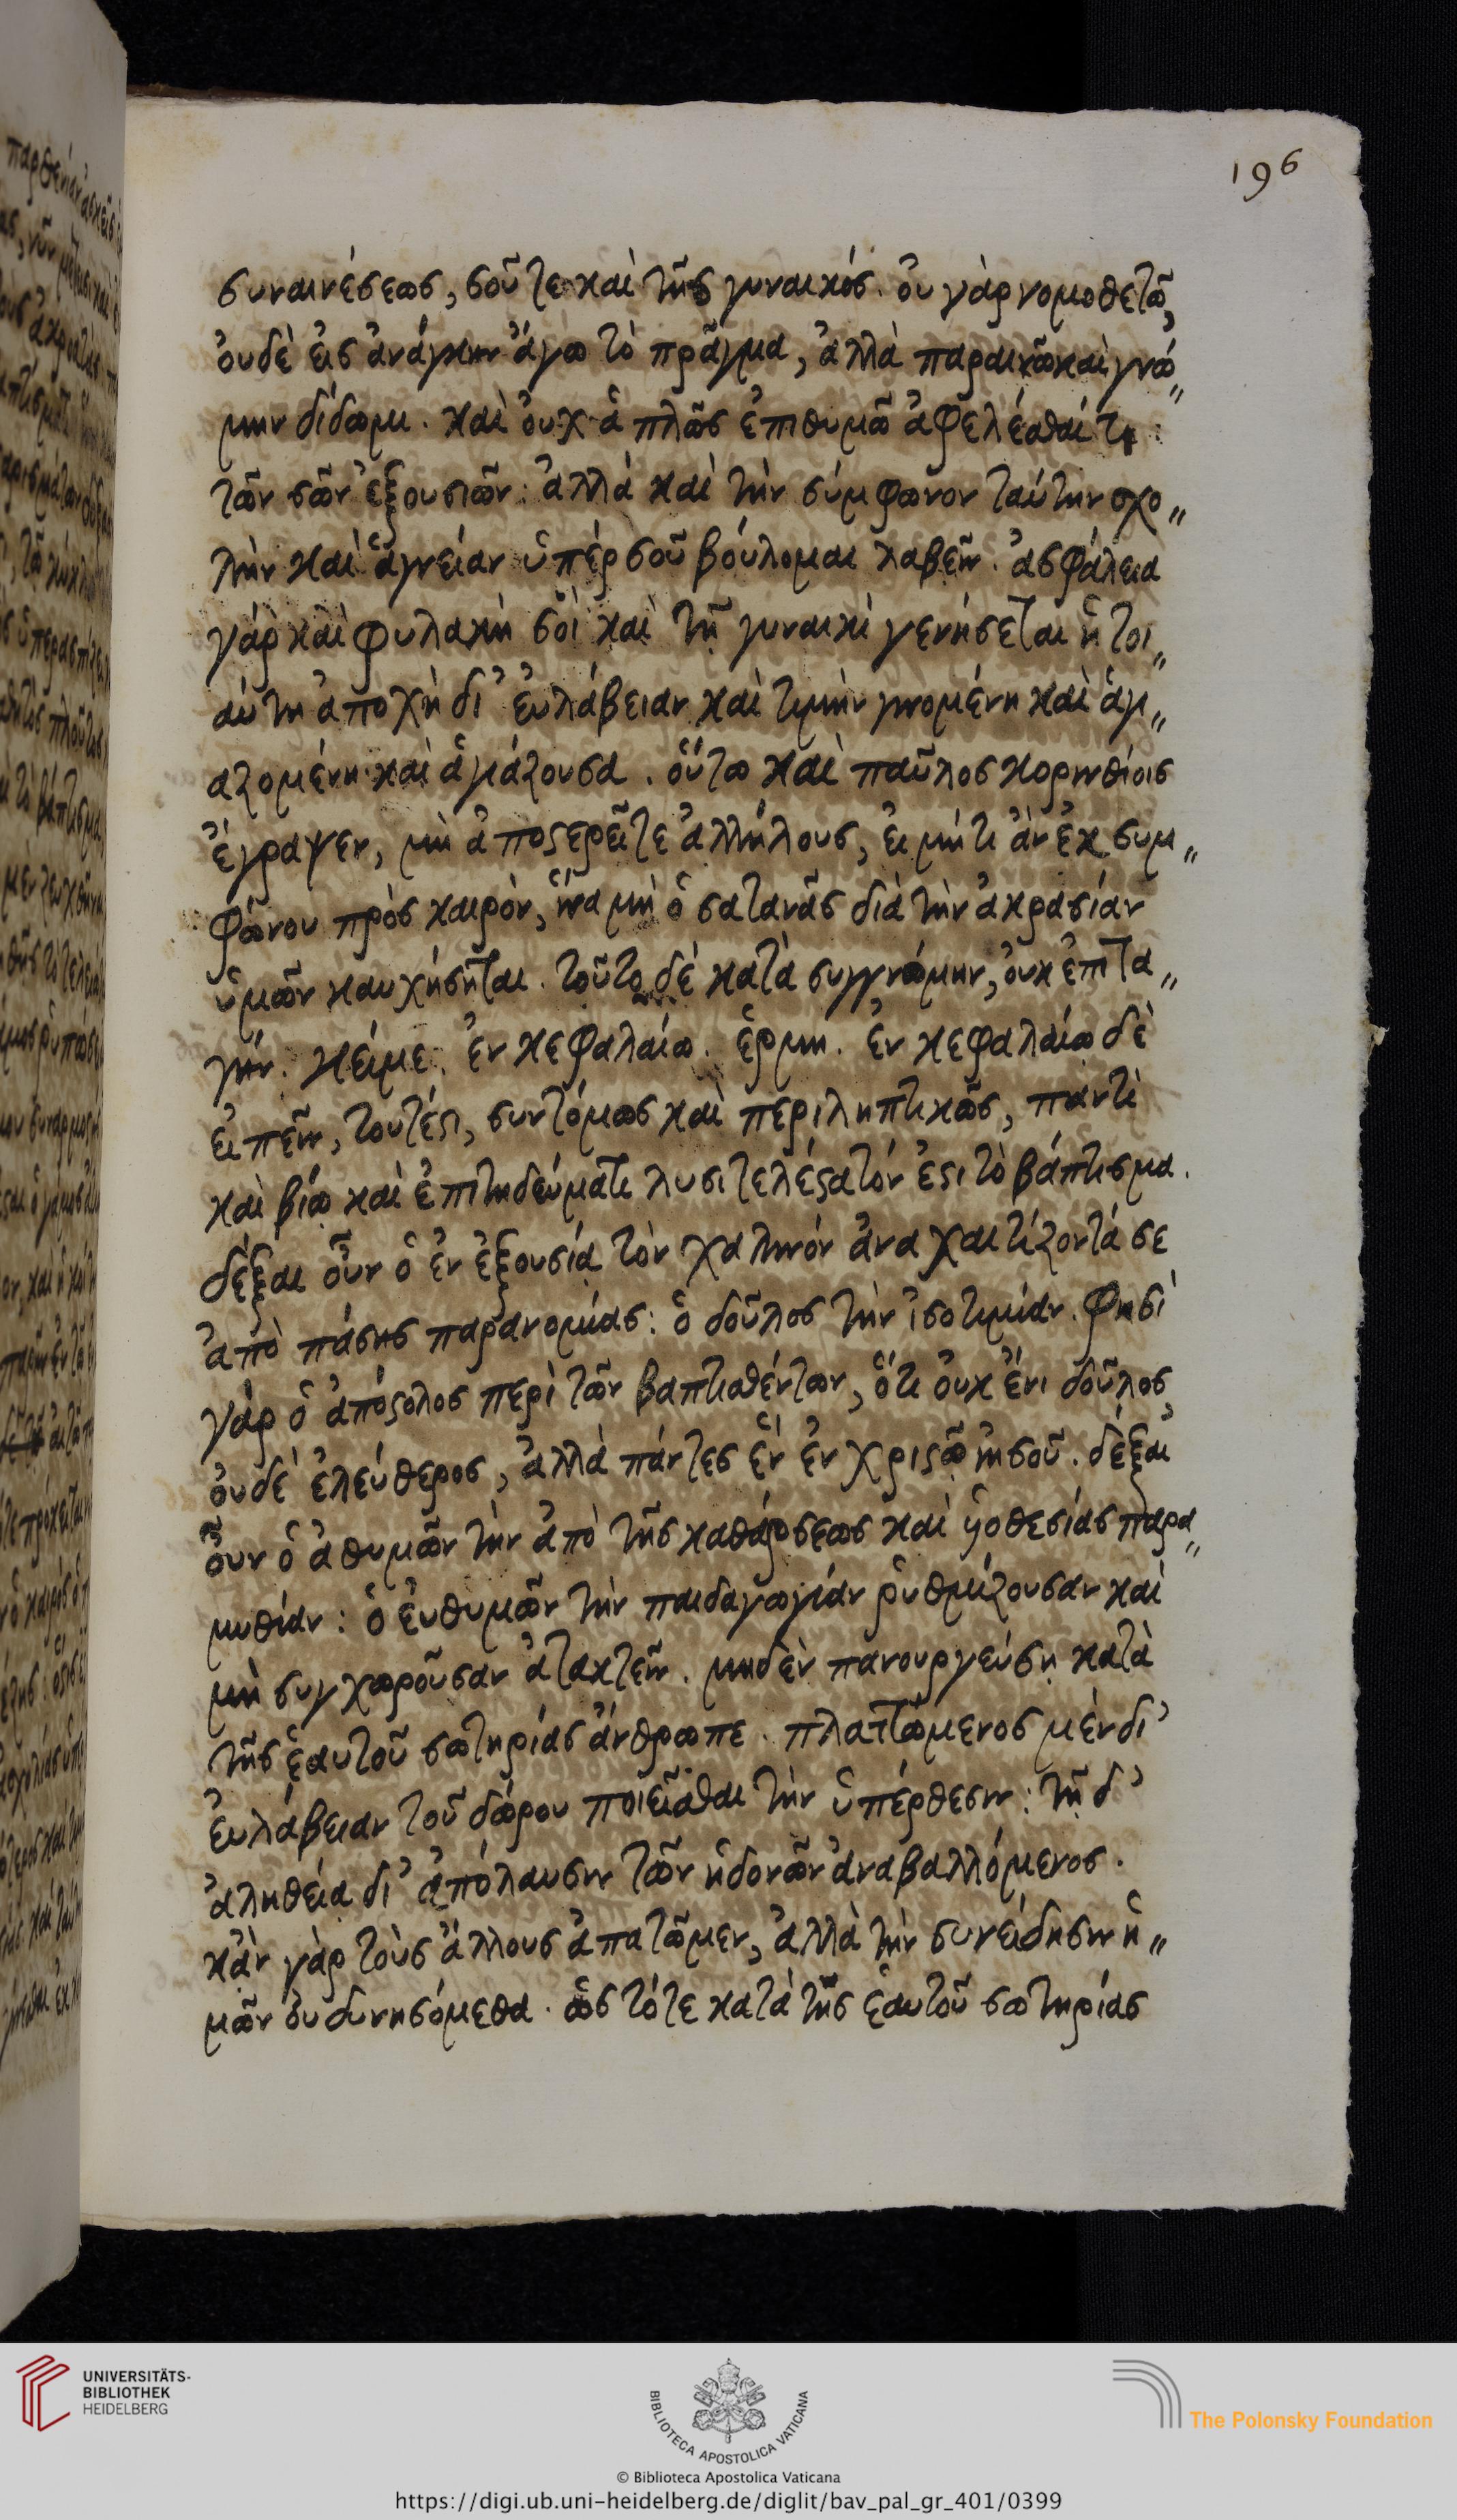 196
συναινέσεως, σοῦ τε καὶ τῆς γυναικός. ὀυ γὰρ νομοθετῶ,
ὀυδὲ ἐις ἀνάγκην ἄγω τὸ πρᾶγμα, ἀλλὰ παραινῶ καὶ γνώ„
μην δίδωμι. καὶ ὀυχ ἁπλῶς ἐπιθυμῶ ἀφελέσθαί τι
τῶν σῶν ἐξουσιῶν: ἀλλὰ καὶ τὴν σύμφωνον ταύτην σχο„
λὴν καὶ ἁγνείαν ὑπέρ σοῦ βούλομαι λαβεῖν. ἀσφάλεια
γὰρ καὶ φυλακή σοὶ καὶ τῇ γυναικὶ γενήσεται ἡ τοι„
αύτη ἀποχὴ δι' ἐυλάβειαν καὶ τιμὴν γινομένη καὶ ἁγι„
αζομένη καὶ ἁγιάζουσα. ὅυτω καὶ παῦλος κορινθίοις
ἔγραψεν, μὴ ἀποστερεῖτε ἀλλήλους, ἐι μήτι ἀν ἐκ συμ„
φώνου πρὸς καιρὸν, ἵνα μὴ ὁ σατανᾶς διὰ τὴν ἀκρασίαν
ὑμῶν καυχήσηται. τοῦτο δὲ κατὰ συγγνώμην, ὀυκ ἐπιτα„
γήν. κείμε. ἐν κεφαλαίω. ἑρμη. ἐν κεφαλαίω δὲ
ἐιπεῖν, τουτέστι, συντόμως καὶ περιληπτικῶς, παντὶ
καὶ βίω καὶ ἐπιτηδεύματι λυσιτελέστατόν ἐστι τὸ βάπτισμα.
δέξαι οὖν ὁ ἐν ἐξουσία τὸν χαλινόν ἀναχαιτίζοντά σε
ἀπὸ πάσης παρανομίας: ὁ δοῦλος τὴν ἰσοτιμίαν. φησὶ
γὰρ ὁ ἀπόστολος περὶ τῶν βαπτισθέντων, ὅτι ὀυκ ἔνι δοῦλος,
ὀυδὲ ἐλεύθερος, ἀλλὰ πάντες ἓν ἐν χριστῶ ἰησοῦ. δέξαι
οὖν ὁ ἀθυμῶν τὴν ἀπὸ τῆς καθάρσεως καὶ υἱοθεσίας παρα„
μυθίαν: ὁ ἐυθυμῶν τὴν παιδαγωγίαν ῥυθμίζουσαν καὶ
μὴ συγχωροῦσαν ἀτακτεῖν. μηδὲν πανουργεύση κατὰ
τῆς ἑαυτοῦ σωτηρίας ἄνθρωπε. πλαττόμενος μὲν δι'
ἐυλάβειαν τοῦ δώρου ποιεῖσθαι τὴν ὑπέρθεσιν: τῇ δ'
ἀληθεία δι' ἀπόλαυσιν τῶν ἡδονῶν ἀναβαλλόμενος.
κἂν γὰρ τοὺς ἄλλους ἀπατῶμεν, ἀλλὰ τὴν συνείδησιν ἡ„
μῶν ὀυ δυνησόμεθα. ὥς τότε κατὰ τῆς ἑαυτοῦ σωτηρίας
UNIVERSITÄTS-
BIBLIOTHEK
HEIDELBERG
BIBLIOTECA APOSTOLICA VATICANA
The Polonsky Foundation
© Biblioteca Apostolica Vaticana
https://digi.ub.uni-heidelberg.de/diglit/bav_pal_gr_401/0399